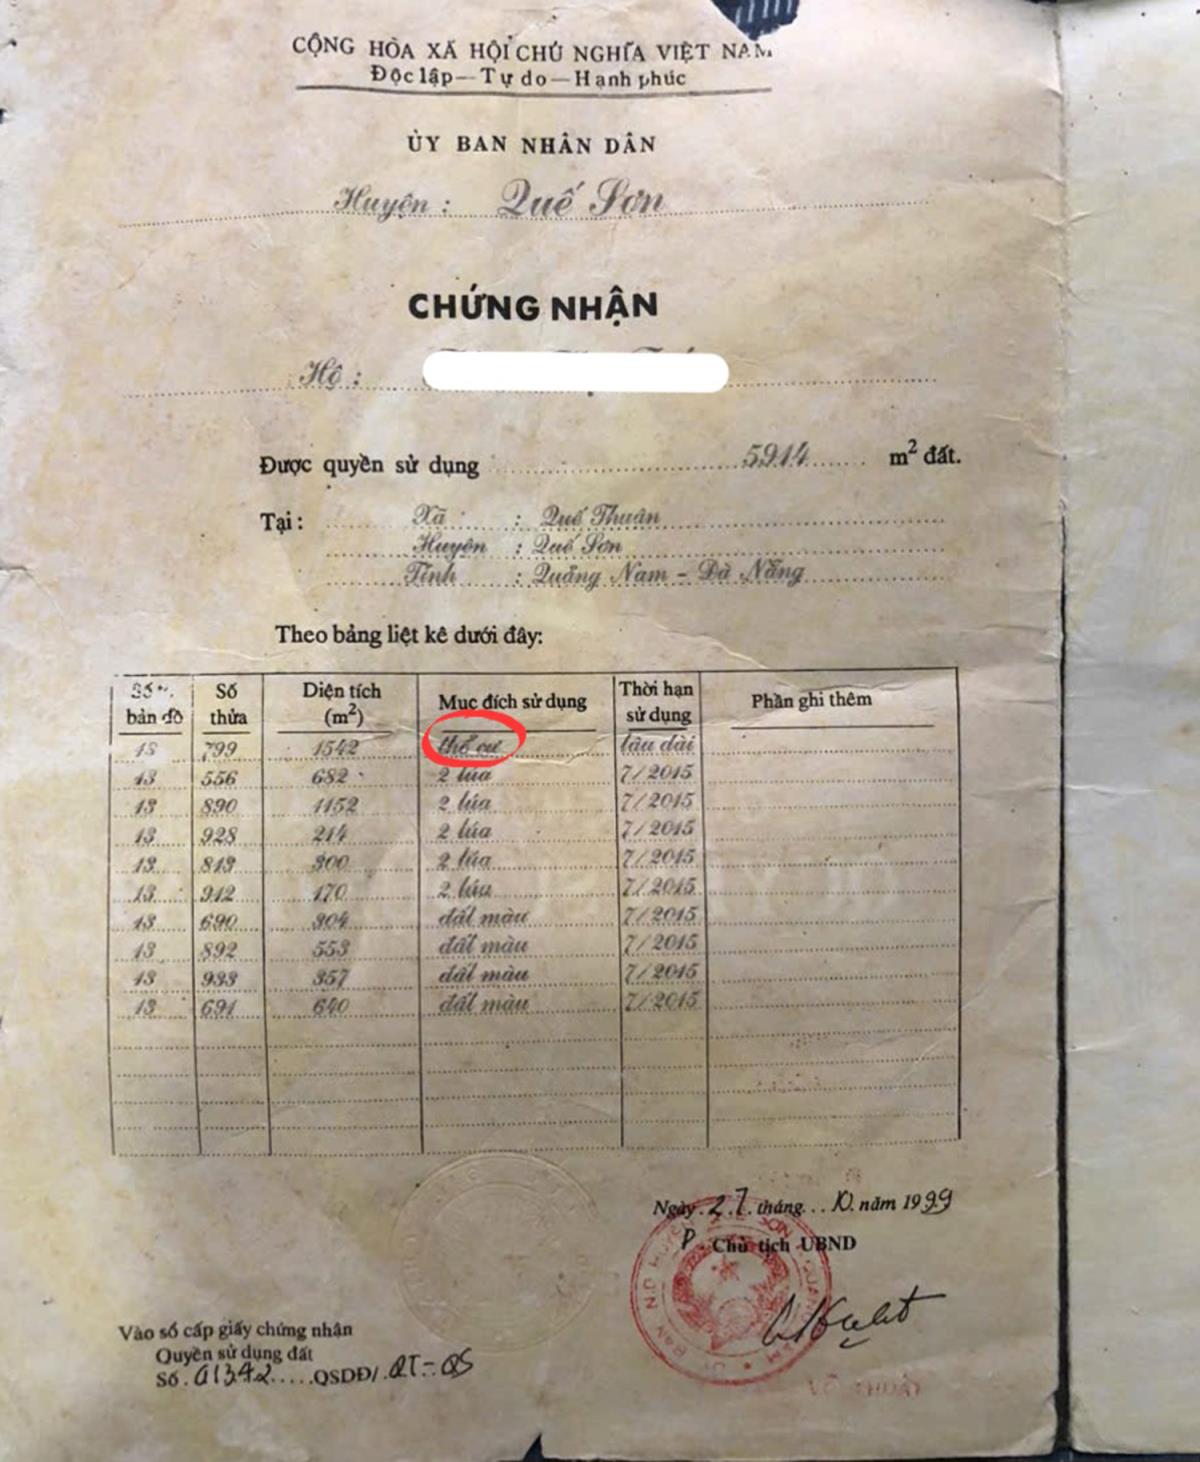 CỘNG HÒA XÃ HỘI CHỦ NGHĨA VIỆT NAM
Độc lập — Tự do — Hạnh phúc
ỦY BAN NHÂN DÂN
Huyện : Quế Sơn
CHỨNG NHẬN
Hộ :
Được quyền sử dụng 5914 m² đất.
Tại : Xã : Quế Thuận
Huyện : Quế Sơn
Tỉnh : Quảng Nam - Đà Nẵng
Theo bảng liệt kê dưới đây:
Số bản đồ Số thửa Diện tích (m²) Mục đích sử dụng Thời hạn sử dụng Phần ghi thêm
13 799 1542 thổ cư lâu dài
13 556 682 2 lúa 7/2015
13 890 1152 2 lúa 7/2015
13 928 214 2 lúa 7/2015
13 813 300 2 lúa 7/2015
13 912 170 2 lúa 7/2015
13 690 304 đất màu 7/2015
13 892 553 đất màu 7/2015
13 933 357 đất màu 7/2015
13 691 640 đất màu 7/2015
Ngày 27 tháng 10 năm 1999
P. Chủ tịch UBND
Vào sổ cấp giấy chứng nhận
Quyền sử dụng đất
Số 01342 QSDĐ/ QT-QS